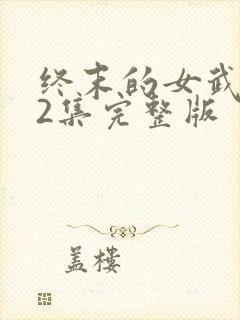 终末的女武
2集完整版
盖楼